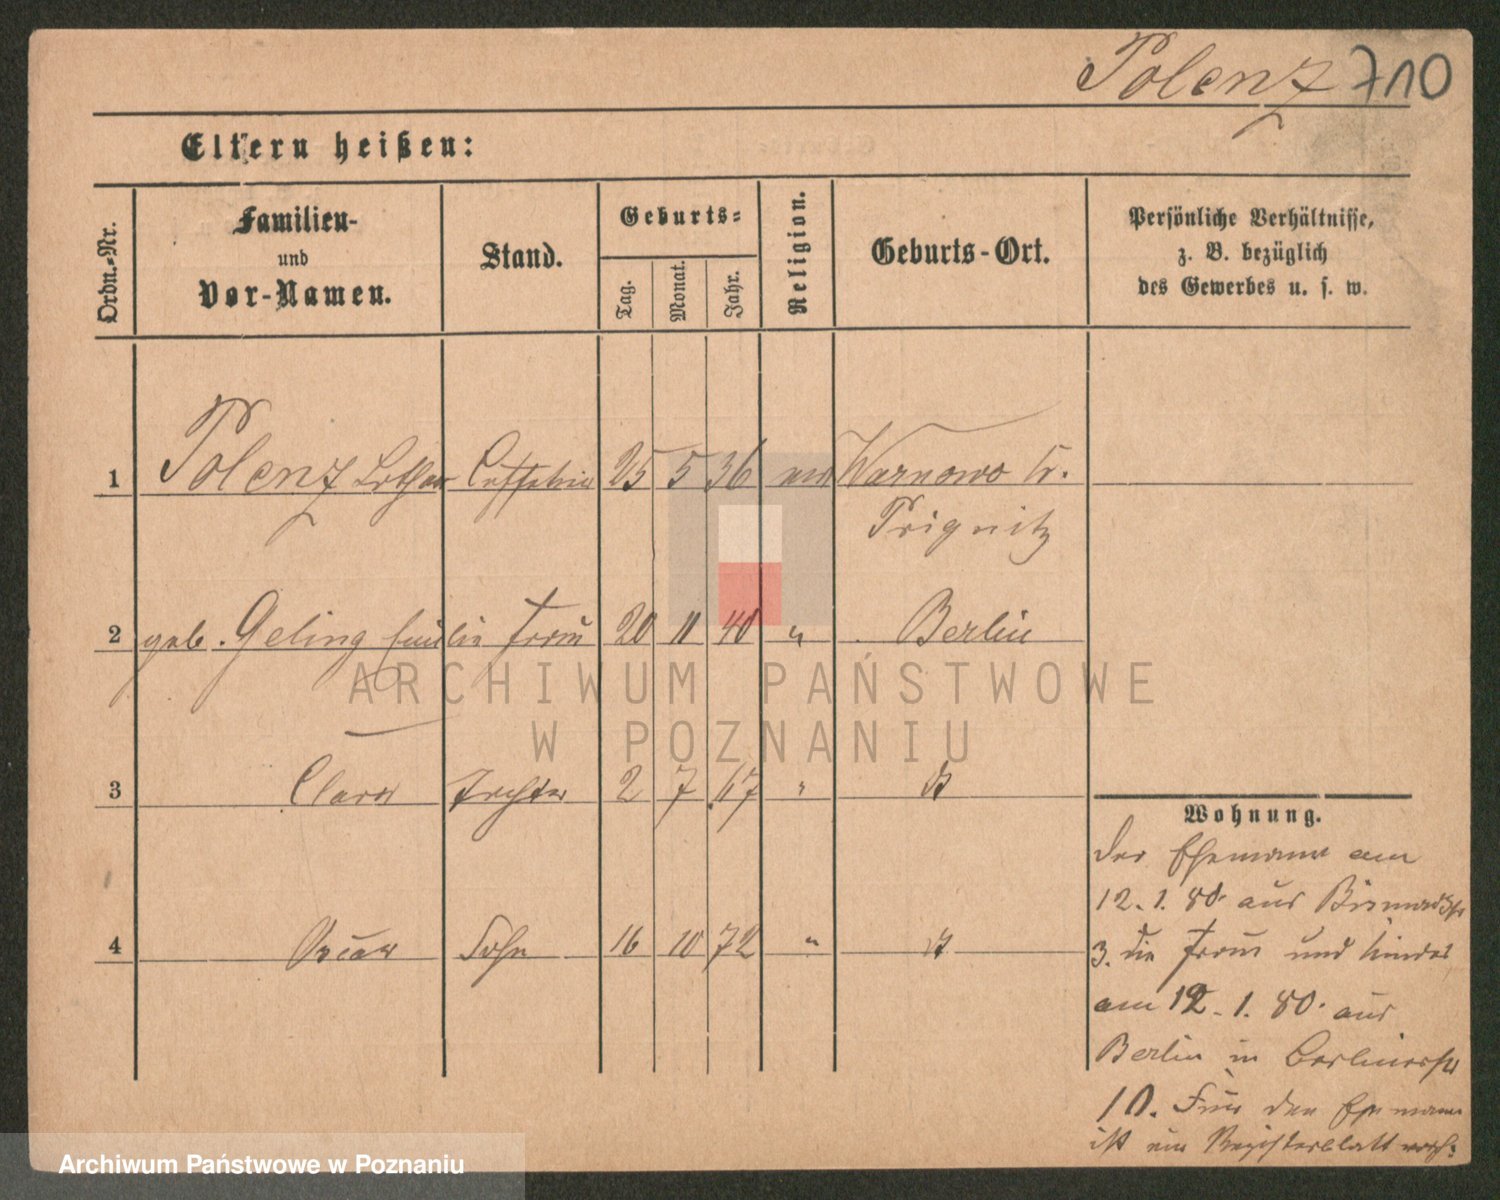 Polenz 710
Eltern heißen:
Ordn.-Nr.
Familien-
und
Vor-Namen.
Stand.
Geburts-
Tag.
Monat.
Jahr.
Religion.
Geburts-Ort.
Persönliche Verhältnisse,
z. B. bezüglich
des Gewerbes u. s. w.
1 Polenz Lothar 25 5 36 Warnowo Kr.
Prignitz
2 geb. Geling Emilie Frau 20 11 40 " Berlin
3 Clara Tochter 2 7 67 "
4 Oscar Sohn 16 10 72 "
Wohnung.
Der Ehemann am
12. 1. 80. aus Bismarckstr
3. die Frau und Kinder
am 12. 1. 80. aus
Berlin in Berlinerstr
10. Für den Ehemann
ist ein Registerblatt
ARCHIWUM PAŃSTWOWE
W POZNANIU
Archiwum Państwowe w Poznaniu